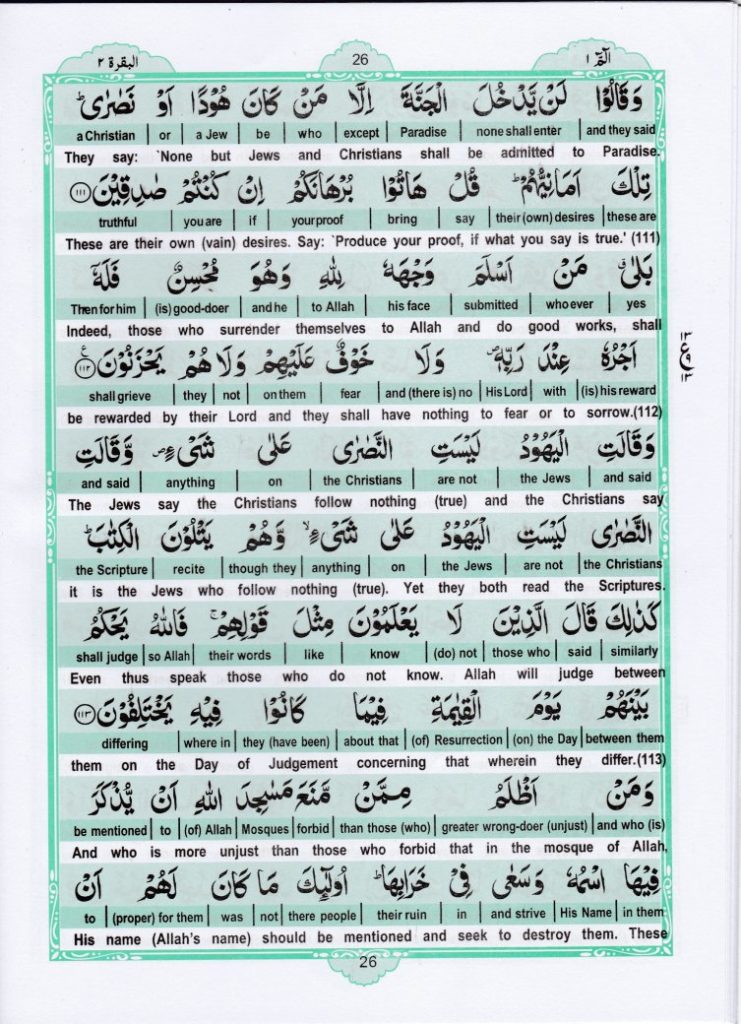 البقرة ٢ 26 الٓمّٓ ١
وَقَالُوْا لَنْ يَّدْخُلَ الْجَنَّةَ اِلَّا مَنْ كَانَ هُوْدًا اَوْ نَصٰرٰى ؕ
a Christian | or | a Jew | be | who | except | Paradise | none shall enter | and they said
They say: `None but Jews and Christians shall be admitted to Paradise.
تِلْكَ اَمَانِيُّهُمْ ؕ قُلْ هَاتُوْا بُرْهَانَكُمْ اِنْ كُنْتُمْ صٰدِقِيْنَ ﴿۱۱۱﴾
truthful | you are | if | your proof | bring | say | their (own) desires | these are
These are their own (vain) desires. Say: `Produce your proof, if what you say is true.' (111)
بَلٰى ۗ مَنْ اَسْلَمَ وَجْهَهٗ لِلّٰهِ وَهُوَ مُحْسِنٌ فَلَهٗٓ
Then for him | (is) good-doer | and he | to Allah | his face | submitted | who ever | yes
Indeed, those who surrender themselves to Allah and do good works, shall
اَجْرُهٗ عِنْدَ رَبِّهٖ ۪ وَلَا خَوْفٌ عَلَيْهِمْ وَلَا هُمْ يَحْزَنُوْنَ ﴿۱۱۲﴾ ع
shall grieve | they | not | on them | fear | and (there is) no | His Lord | with | (is) his reward
be rewarded by their Lord and they shall have nothing to fear or to sorrow.(112)
١٣ ع ٩ ١٣
وَقَالَتِ الْيَهُوْدُ لَيْسَتِ النَّصٰرٰى عَلٰى شَىْءٍ ۪ وَّقَالَتِ
and said | anything | on | the Christians | are not | the Jews | and said
The Jews say the Christians follow nothing (true) and the Christians say
النَّصٰرٰى لَيْسَتِ الْيَهُوْدُ عَلٰى شَىْءٍ ۙ وَّهُمْ يَتْلُوْنَ الْكِتٰبَ ؕ
the Scripture | recite | though they | anything | on | the Jews | are not | the Christians
it is the Jews who follow nothing (true). Yet they both read the Scriptures.
كَذٰلِكَ قَالَ الَّذِيْنَ لَا يَعْلَمُوْنَ مِثْلَ قَوْلِهِمْ ۚ فَاللّٰهُ يَحْكُمُ
shall judge | so Allah | their words | like | know | (do) not | those who | said | similarly
Even thus speak those who do not know. Allah will judge between
بَيْنَهُمْ يَوْمَ الْقِيٰمَةِ فِيْمَا كَانُوْا فِيْهِ يَخْتَلِفُوْنَ ﴿۱۱۳﴾
differing | where in | they (have been) | about that | (of) Resurrection | (on) the Day | between them
them on the Day of Judgement concerning that wherein they differ.(113)
وَمَنْ اَظْلَمُ مِمَّنْ مَّنَعَ مَسٰجِدَ اللّٰهِ اَنْ يُّذْكَرَ
be mentioned | to | (of) Allah | Mosques | forbid | than those (who) | greater wrong-doer (unjust) | and who (is)
And who is more unjust than those who forbid that in the mosque of Allah,
فِيْهَا اسْمُهٗ وَسَعٰى فِىْ خَرَابِهَا ؕ اُولٰٓئِكَ مَا كَانَ لَهُمْ اَنْ
to | (proper) for them | was | not | there people | their ruin | in | and strive | His Name | in them
His name (Allah's name) should be mentioned and seek to destroy them. These
26